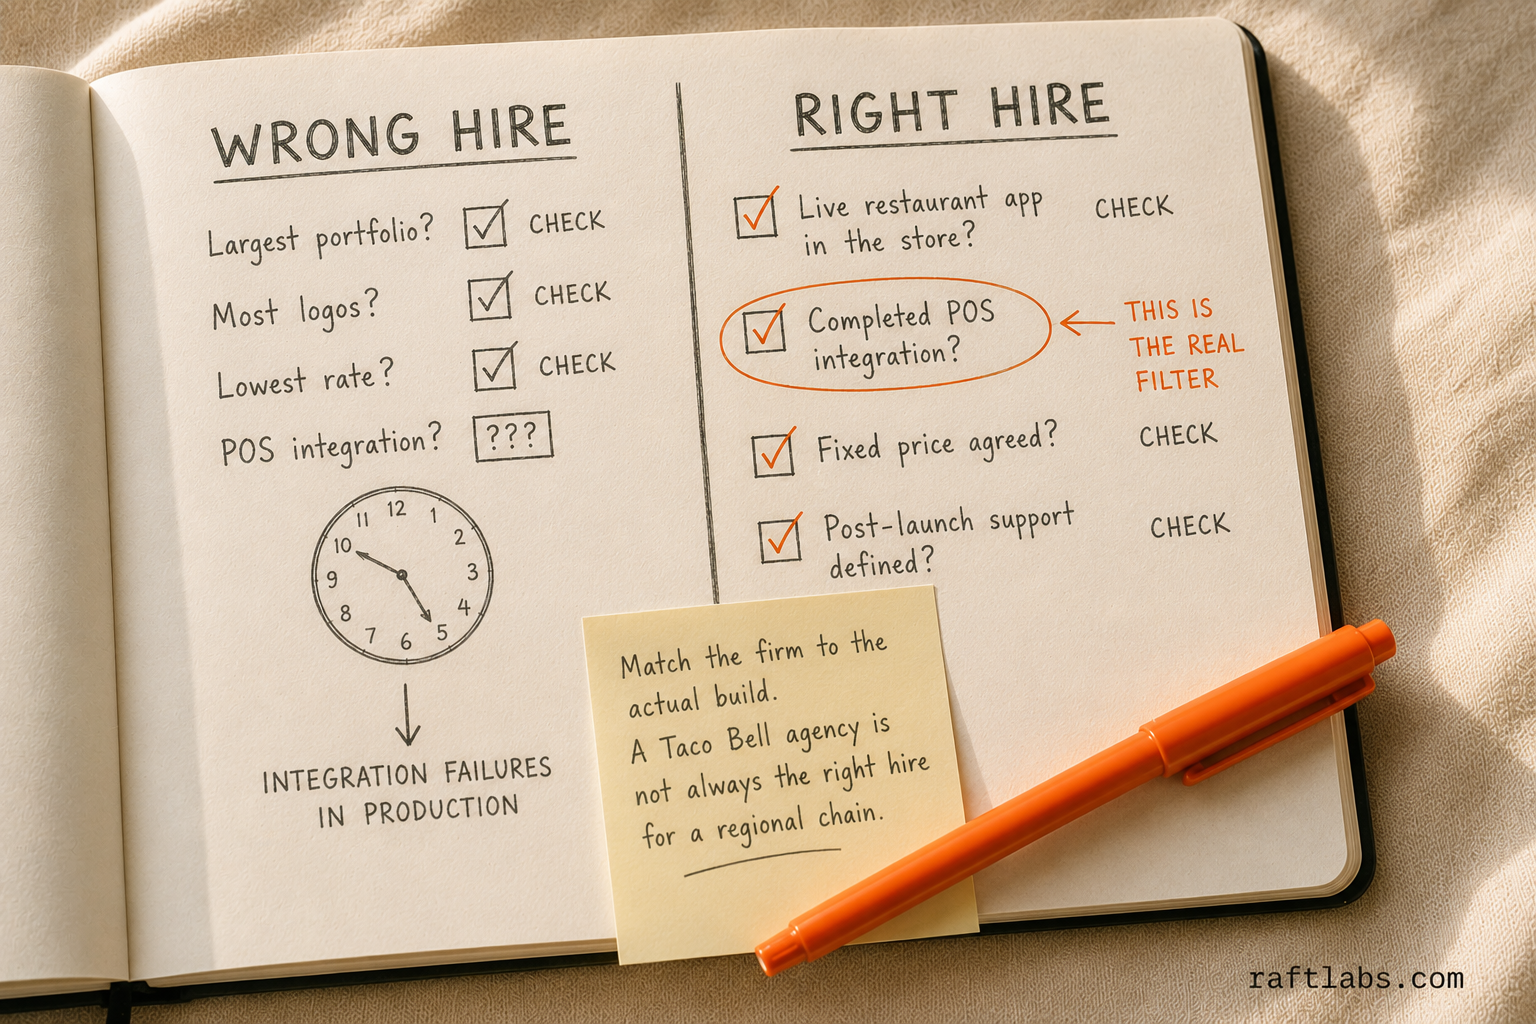 WRONG HIRE
Largest portfolio? CHECK
Most logos? CHECK
Lowest rate? CHECK
POS integration? ???
12
1
2
3
4
5
6
7
8
9
10
11
INTEGRATION FAILURES
IN PRODUCTION
RIGHT HIRE
Live restaurant app CHECK
in the store?
Completed POS
integration?
THIS IS
THE REAL
FILTER
Fixed price agreed? CHECK
Post-launch support CHECK
defined?
Match the firm to the
actual build.
A Taco Bell agency is
not always the right hire
for a regional chain.
raftlabs.com